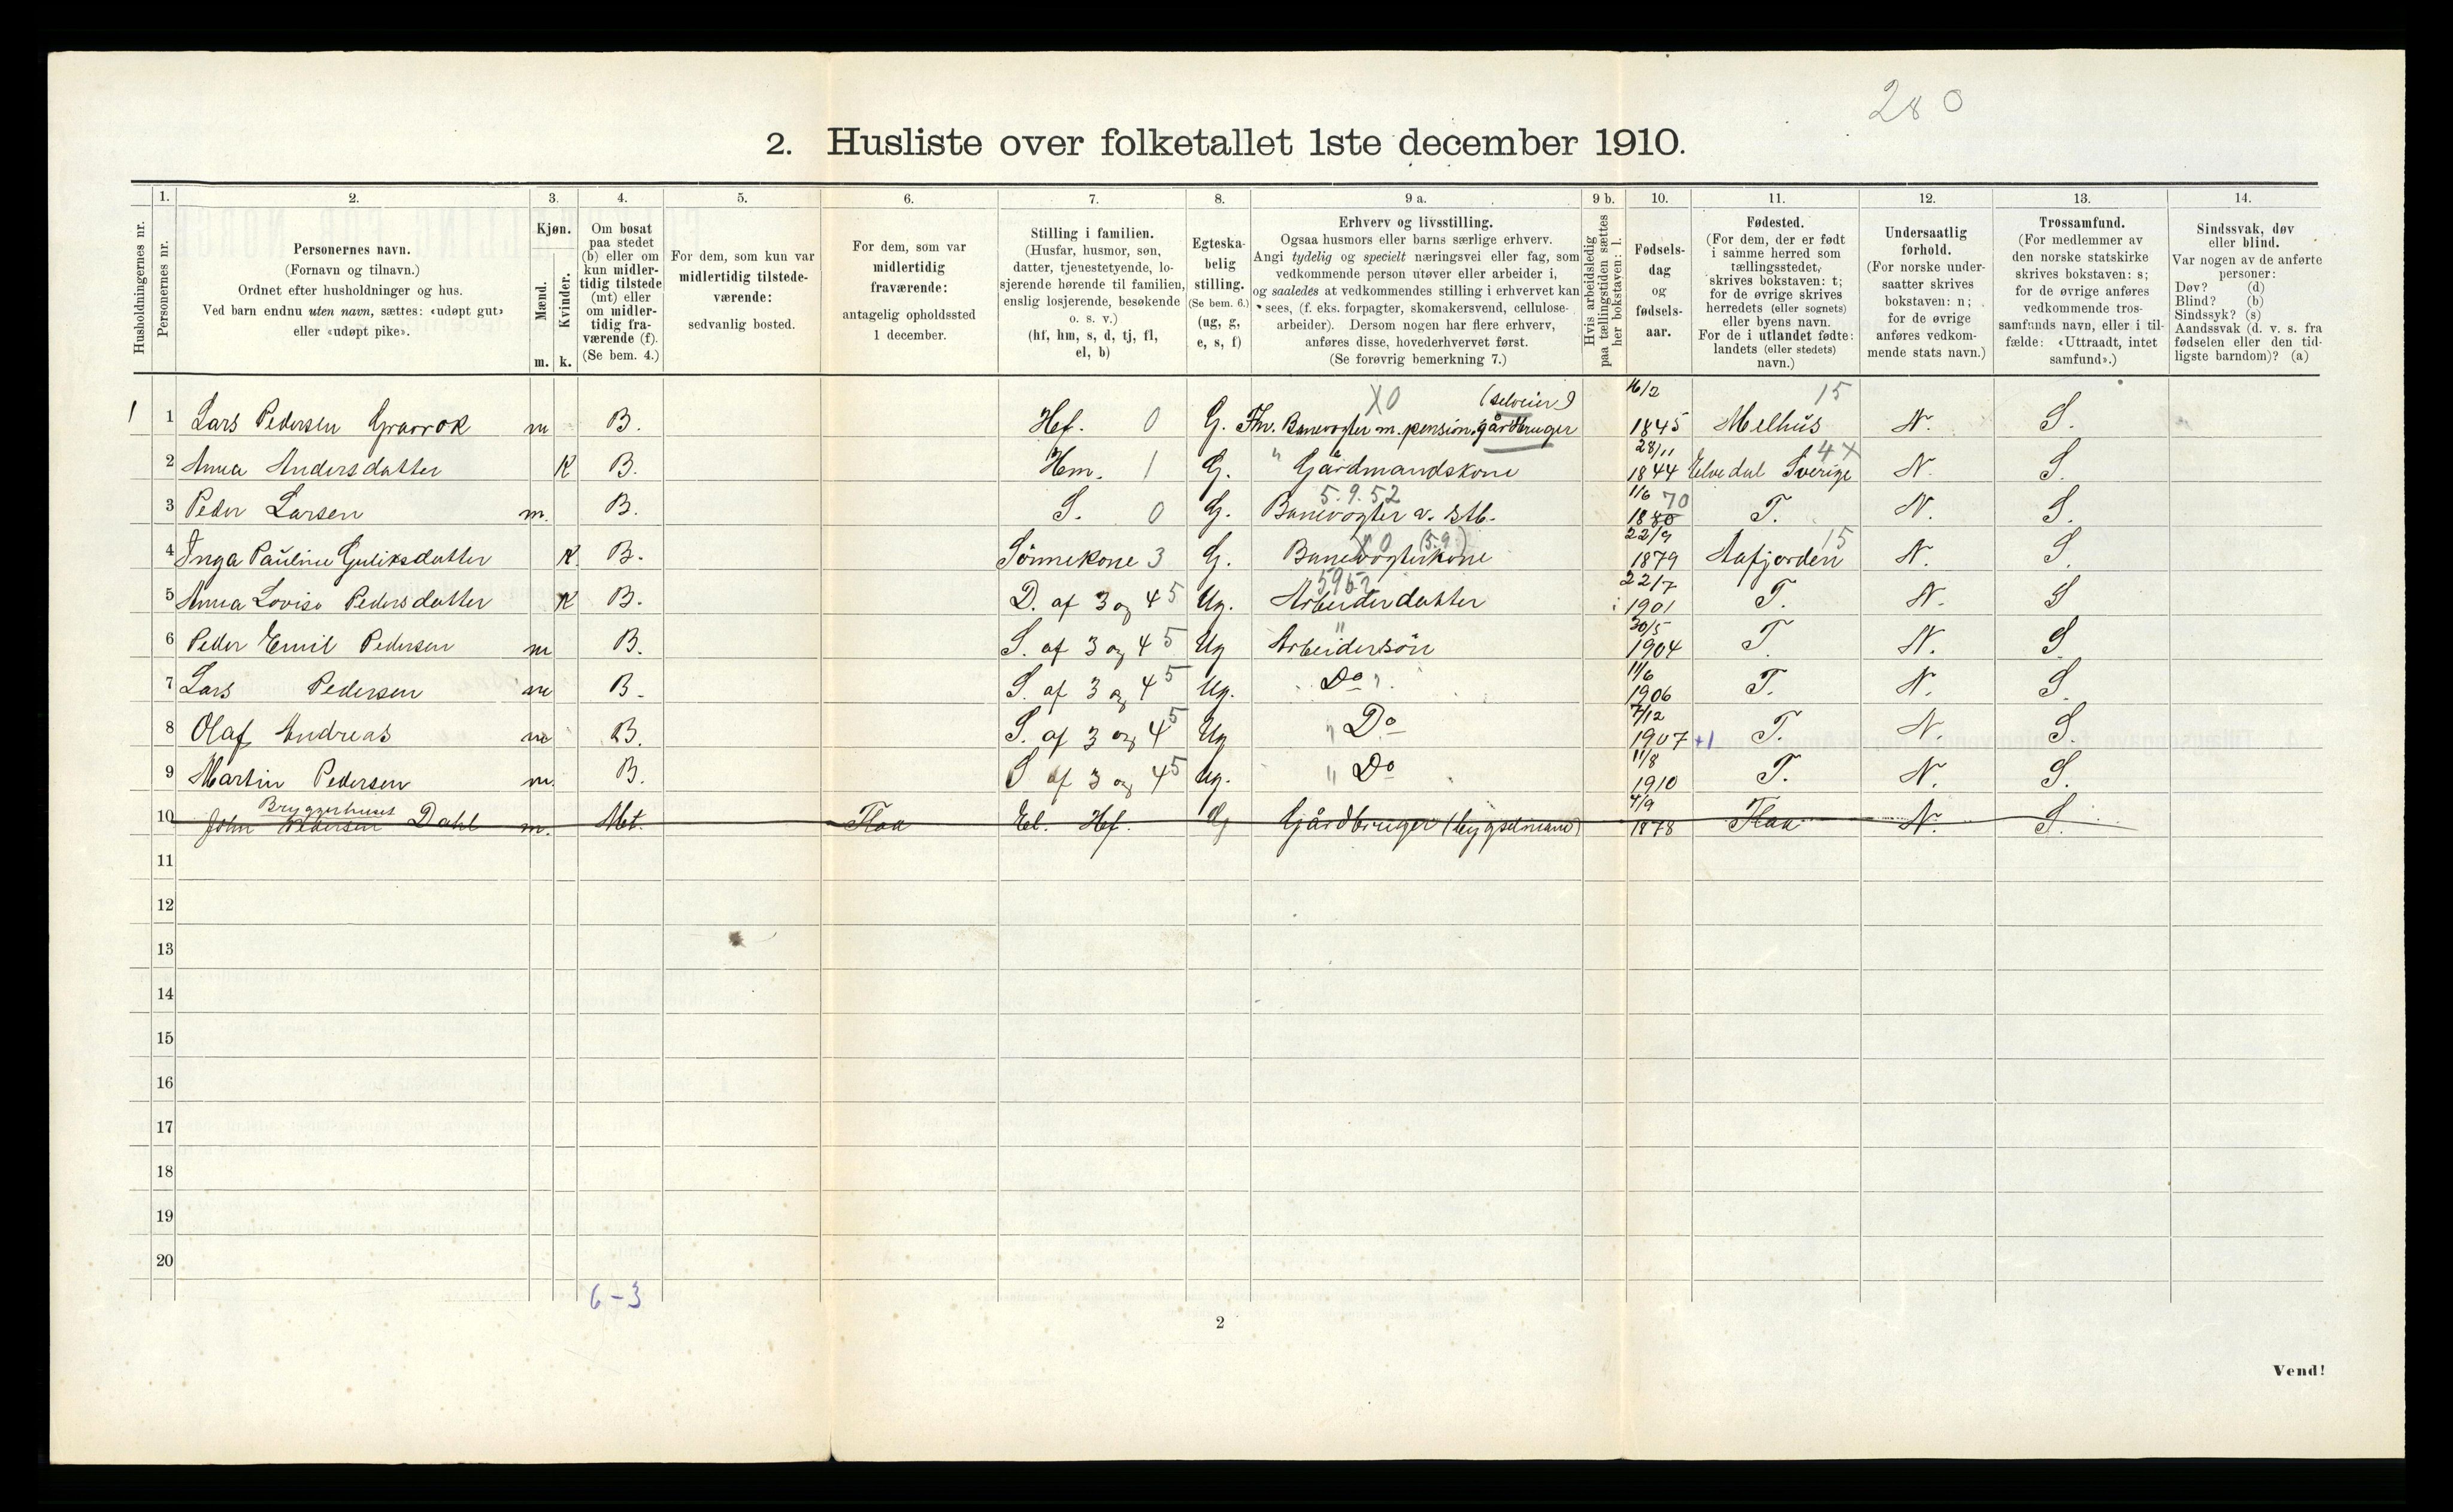 280
2. Husliste over folketallet 1ste december 1910.
Husholdningernes nr.
1.
Personernes nr.
2.
Personernes navn.
(Fornavn og tilnavn.)
Ordnet efter husholdninger og hus.
Ved barn endnu uten navn, sættes: «udøpt gut»
eller «udøpt pike».
3.
Kjøn.
Mænd.
m.
Kvinder.
k.
4.
Om bosat
paa stedet
(b) eller om
kun midler-
tidig tilstede
(mt) eller
om midler-
tidig fra-
værende (f).
(Se bem. 4.)
5.
For dem, som kun var
midlertidig tilstede-
værende:
sedvanlig bosted.
6.
For dem, som var
midlertidig
fraværende:
antagelig opholdssted
1 december.
7.
Stilling i familien.
(Husfar, husmor, søn,
datter, tjenestetyende, lo-
sjerende hørende til familien,
enslig losjerende, besøkende
o. s. v.)
(hf, hm, s, d, tj, fl,
el, b)
8.
Egteska-
belig
stilling.
(Se bem. 6.)
(ug, g,
e, s, f)
9 a.
Erhverv og livsstilling.
Ogsaa husmors eller barns særlige erhverv.
Angi tydelig og specielt næringsvei eller fag, som
vedkommende person utøver eller arbeider i,
og saaledes at vedkommendes stilling i erhvervet kan
sees, (f. eks. forpagter, skomakersvend, cellulose-
arbeider). Dersom nogen har flere erhverv,
anføres disse, hovederhvervet først.
(Se forøvrig bemerkning 7.)
9 b.
Hvis arbeidsledig
paa tællingstiden sættes
her bokstaven: l.
10.
Fødsels-
dag
og
fødsels-
aar.
11.
Fødested.
(For dem, der er født
i samme herred som
tællingsstedet,
skrives bokstaven: t;
for de øvrige skrives
herredets (eller sognets)
eller byens navn.
For de i utlandet fødte:
landets (eller stedets)
navn.)
12.
Undersaatlig
forhold.
(For norske under-
saatter skrives
bokstaven: n;
for de øvrige
anføres vedkom-
mende stats navn.)
13.
Trossamfund.
(For medlemmer av
den norske statskirke
skrives bokstaven: s;
for de øvrige anføres
vedkommende tros-
samfunds navn, eller i til-
fælde: «Uttraadt, intet
samfund».)
14.
Sindssvak, døv
eller blind.
Var nogen av de anførte
personer:
Døv? (d)
Blind? (b)
Sindssyk? (s)
Aandssvak (d. v. s. fra
fødselen eller den tid-
ligste barndom)? (a)
X0 (selveier) 16/2 15
1 1 Lars Pedersen Gravrok m B. Hf. 0 G. Fhv. Banevogter m. pension. gårdbruger 1845 Melhus N. S.
28/11 4X
2 Anna Andersdatter K B. Hm. 1 G. " Gårdmandskone 1844 Elvedal Sverige N. S.
5.9.52 1/6 70
3 Peder Larsen m. B. S. 0 G. Banevogter v. Stb. 1880 T. N. S.
X0 (5.9.) 22/9 15
4 Inga Pauline Guliksdatter K. B. Sønnekone 3 G. Banevogterkone 1879 Aafjorden N. S.
5952 22/7
5 Anna Lovise Pedersdatter K B. D. af 3 og 4 5 Ug. Arbeiderdatter 1901 T. N. S
" 30/5
6 Peder Emil Pedersen m B. S. af 3 og 4 5 Ug Arbeidersön 1904 T. N. S
11/6
7 Lars Pedersen m B. S. af 3 og 4 5 Ug. Do " 1906 T. N. S.
7/12
8 Olaf Andreas m B. S. af 3 og 4 5 Ug " Do 1907 +1 T. N. S.
11/8
9 Martin Pedersen m. B. S af 3 og 4 5 Ug. " Do 1910 T. N. S.
Bryggerhuset 4/9
10 John Pedersen Dahl m. Mt. Flaa El. Hf. G Gårdbruger (bygselmand) 1878 Flaa N. S.
11
12
13
14
15
16
17
18
19
20
6-3
2
Vend!